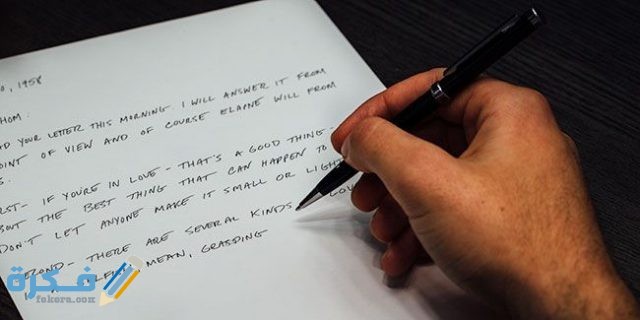 0, 1958
HOM:
AD YOUR LETTER THIS MORNING. I WILL ANSWER IT FROM
OINT OF VIEW AND OF COURSE ELAINE WILL FROM
S.
RST- IF YOU'RE IN LOVE - THAT'S A GOOD THING -
BOUT THE BEST THING THAT CAN HAPPEN TO
DON'T LET ANYONE MAKE IT SMALL OR LIGH
ECOND- THERE ARE SEVERAL KINDS LOV
MEAN, GRASPING
فكرة
fekera.com